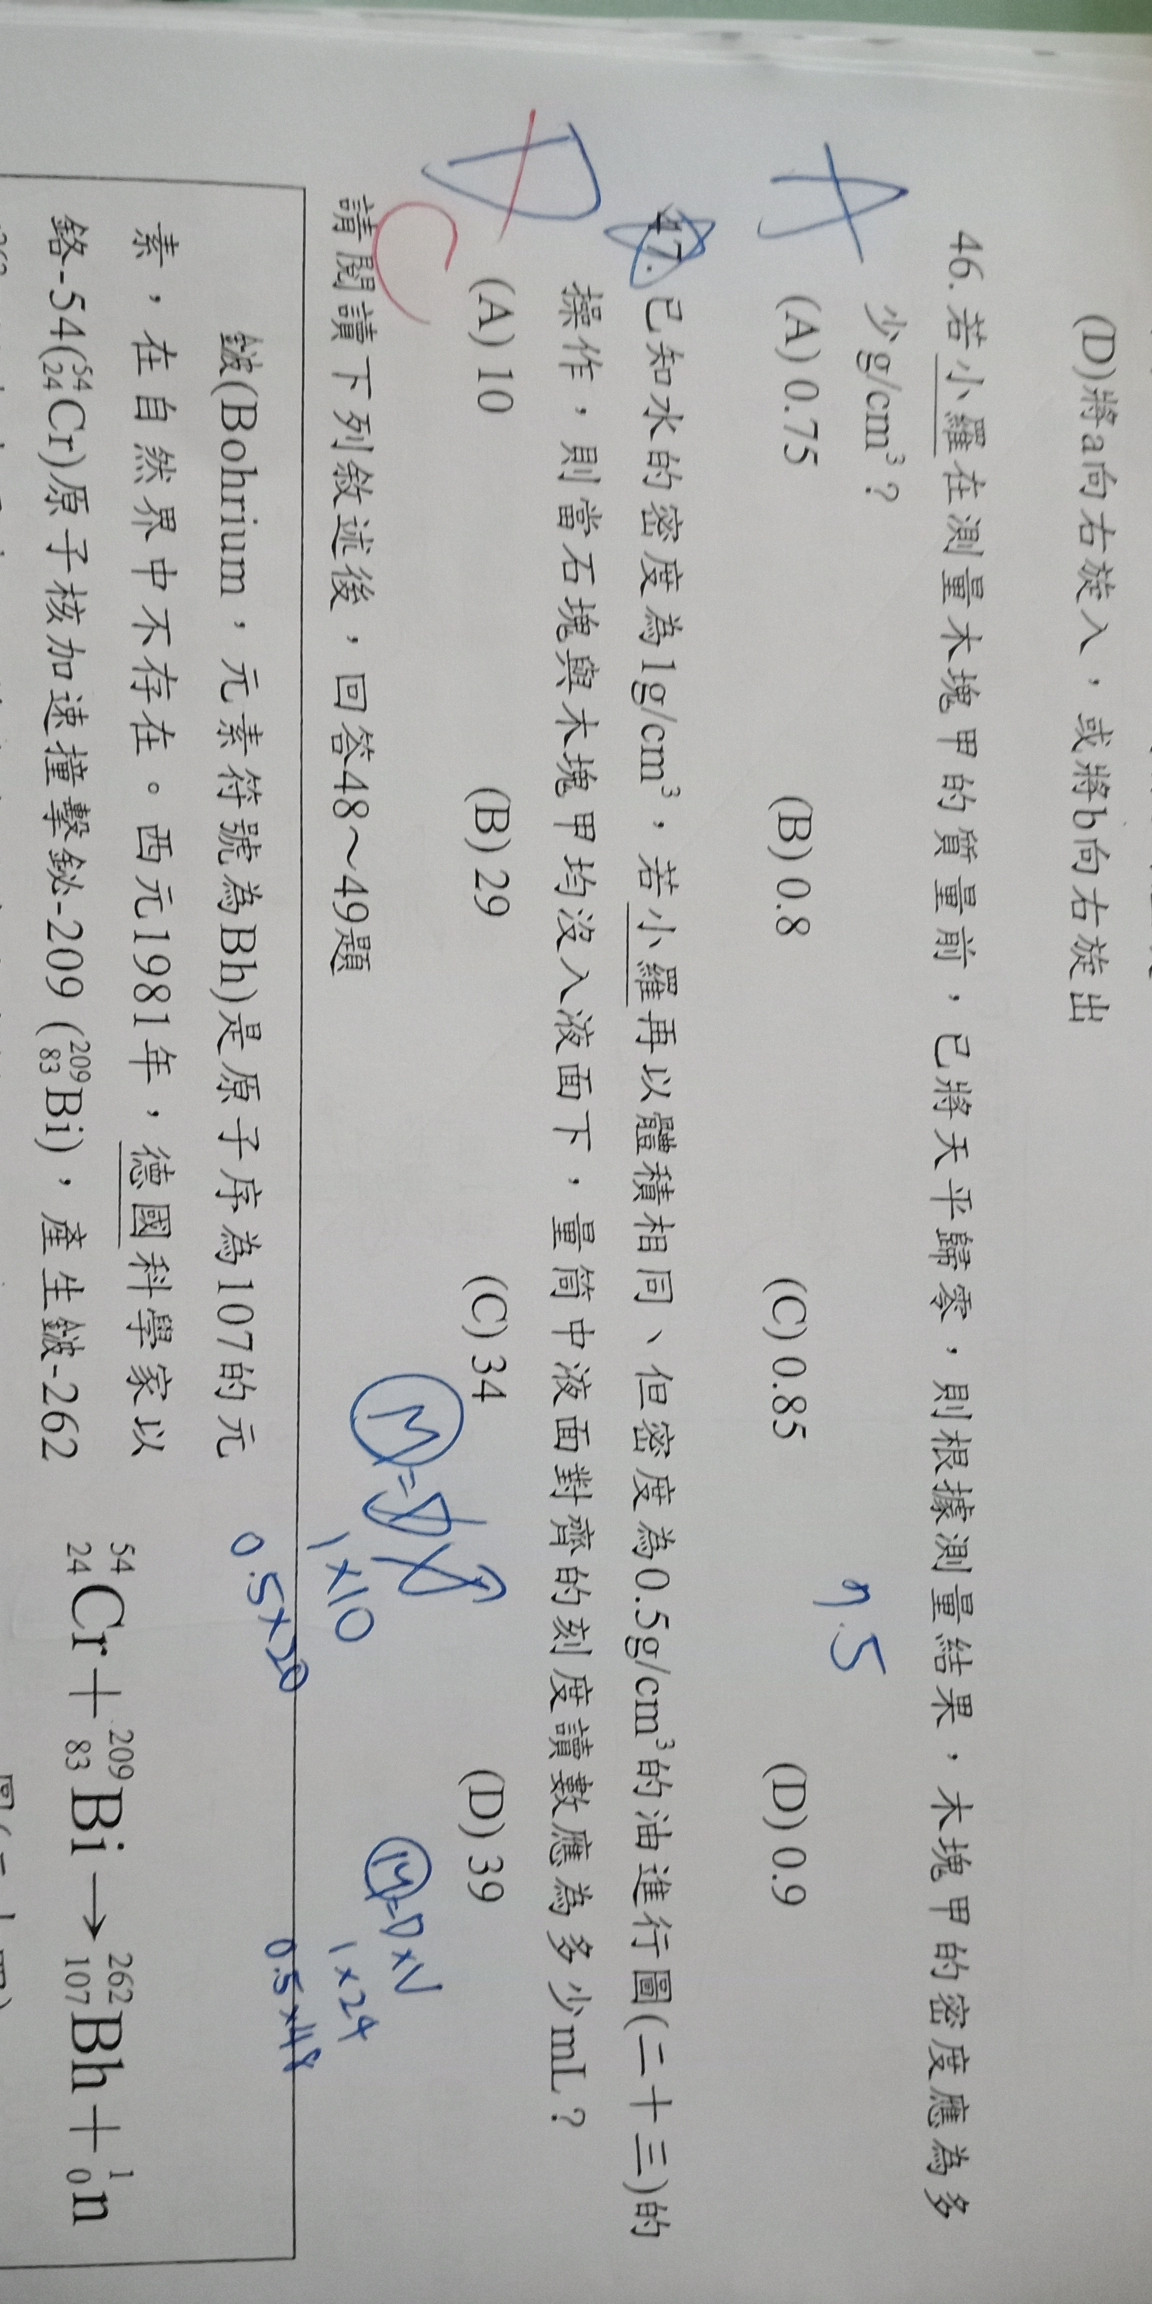 (D)將a向右旋入，或將b向右旋出
46. 若小羅在測量木塊甲的質量前，已將天平歸零，則根據測量結果，木塊甲的密度應為多
少g/cm³？
(A) 0.75 (B) 0.8 (C) 0.85 (D) 0.9
A
7.5
47. 已知水的密度為1g/cm³，若小羅再以體積相同、但密度為0.5g/cm³的油進行圖(二十三)的
操作，則當石塊與木塊甲均沒入液面下，量筒中液面對齊的刻度讀數應為多少mL？
(A) 10 (B) 29 (C) 34 (D) 39
D
C
M=D×V
1×10
0.5×20
M=D×V
1×24
0.5×48
請閱讀下列敘述後，回答48～49題
鈹(Bohrium，元素符號為Bh)是原子序為107的元
素，在自然界中不存在。西元1981年，德國科學家以
鉻-54(⁵⁴₂₄Cr)原子核加速撞擊鉍-209 (²⁰⁹₈₃Bi)，產生鈹-262
⁵⁴₂₄Cr＋²⁰⁹₈₃Bi→²⁶²₁₀₇Bh＋¹₀n